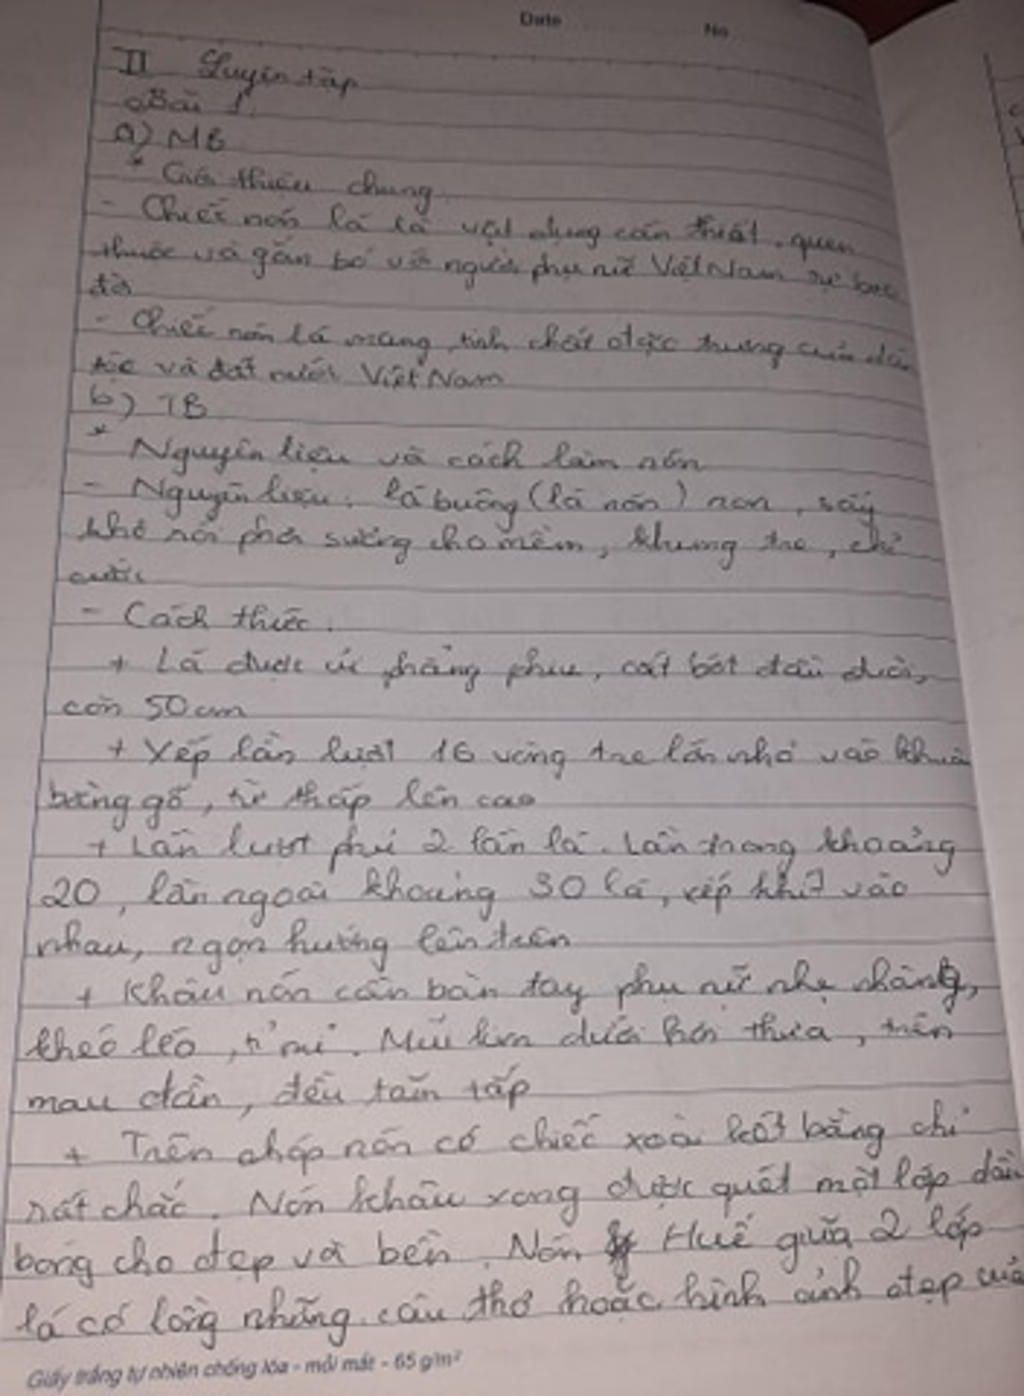 Date No
II Luyện tập
Bài 1
a) MB
* Giới thiệu chung
- Chiếc nón lá là vật dụng cần thiết, quen
thuộc và gắn bó với người phụ nữ Việt Nam từ bao
đời
- Chiếc nón lá mang tính chất đặc trưng của dân
tộc và đất nước Việt Nam
b) TB
* Nguyên liệu và cách làm nón
- Nguyên liệu: lá buông (lá nón) non, sấy
khô rồi phơi sương cho mềm, khung tre, chỉ
cước
- Cách thức:
+ Lá được ủi phẳng phiu, cắt bớt đầu dưới,
còn 50cm
+ Xếp lần lượt 16 vòng tre lớn nhỏ vào khuôn
bằng gỗ, từ thấp lên cao
+ Lần lượt phủ 2 lần lá. Lần trong khoảng
20, lần ngoài khoảng 30 lá, xếp khít vào
nhau, ngọn hướng lên trên
+ Khâu nón cần bàn tay phụ nữ nhẹ nhàng,
khéo léo, tỉ mỉ. Mũi kim dưới hơi thưa, trên
mau dần, đều tăm tắp
+ Trên chóp nón có chiếc xoài kết bằng chỉ
rất chắc. Nón khâu xong được quét một lớp dầu
bóng cho đẹp và bền. Nón Huế giữa 2 lớp
lá có lồng những câu thơ hoặc hình ảnh đẹp của
Giấy trắng tự nhiên chống lóa - mỏi mắt - 65 g/m²